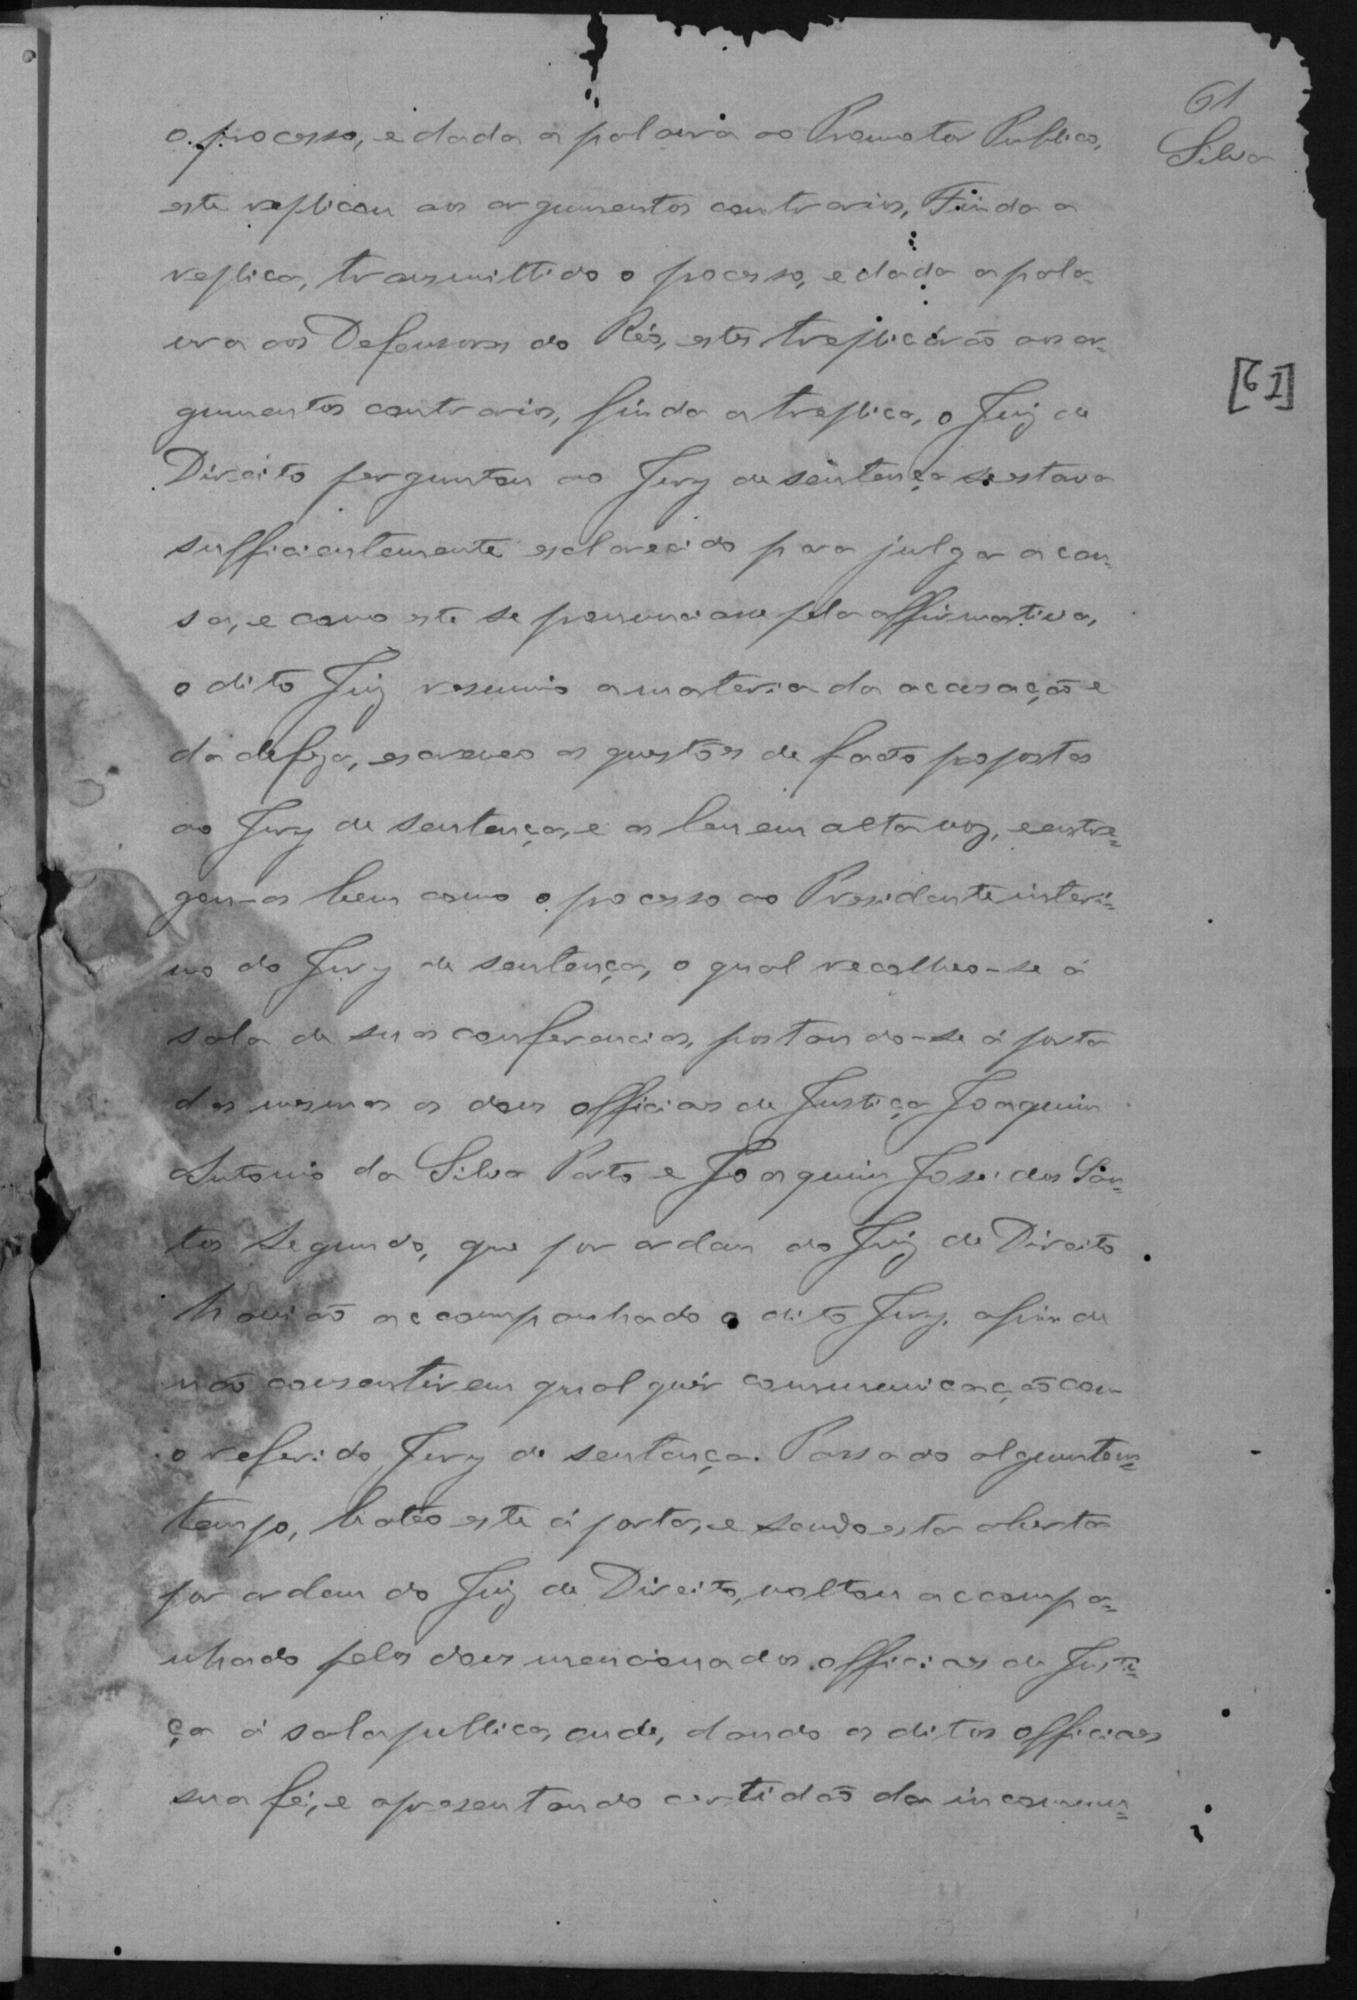 61
Silva
o processo, e dada a palavra ao Promotor Publico,
este replicou aos argumentos contrarios, Finda a
replica, transmittido o processo, e dada a pala-
vra aos Defensores do Réo, estes treplicárão aos ar-
gumentos contrarios, finda a treplica, o Juiz de
[61]
Direito perguntou ao Jury de sentença se estava
sufficientemente esclarecido para julgar a cau-
sa, e como este se pronunciasse pela affirmativa,
o dito Juiz resumio a materia da accusação e
da defeza, escreveo as questões de facto propostas
ao Jury de sentença, e as leu em alta voz, e entre-
gou-as bem como o processo ao Presidente interi-
no do Jury de sentença, o qual recolheo-se á
sala de suas conferencias, postando-se á porta
das mesmas os dous officiaes de Justiça Joaquim
Antonio da Silva Porto e Joaquim José dos San-
tos Segundo, que por ordem do Juiz de Direito
havião accompanhado o dito Jury, afim de
não consentirem qualquér communicação com
o referido Jury de sentença. Passado algum tem-
tempo, bateo este á porta, e sendo esta aberta
por ordem do Juiz de Direito, voltou accompa-
nhado pelos dous mencionados officiaes de Justi-
ça á sala publica, onde, dando os ditos officiaes
sua fé, e apresentando certidão da incommu-